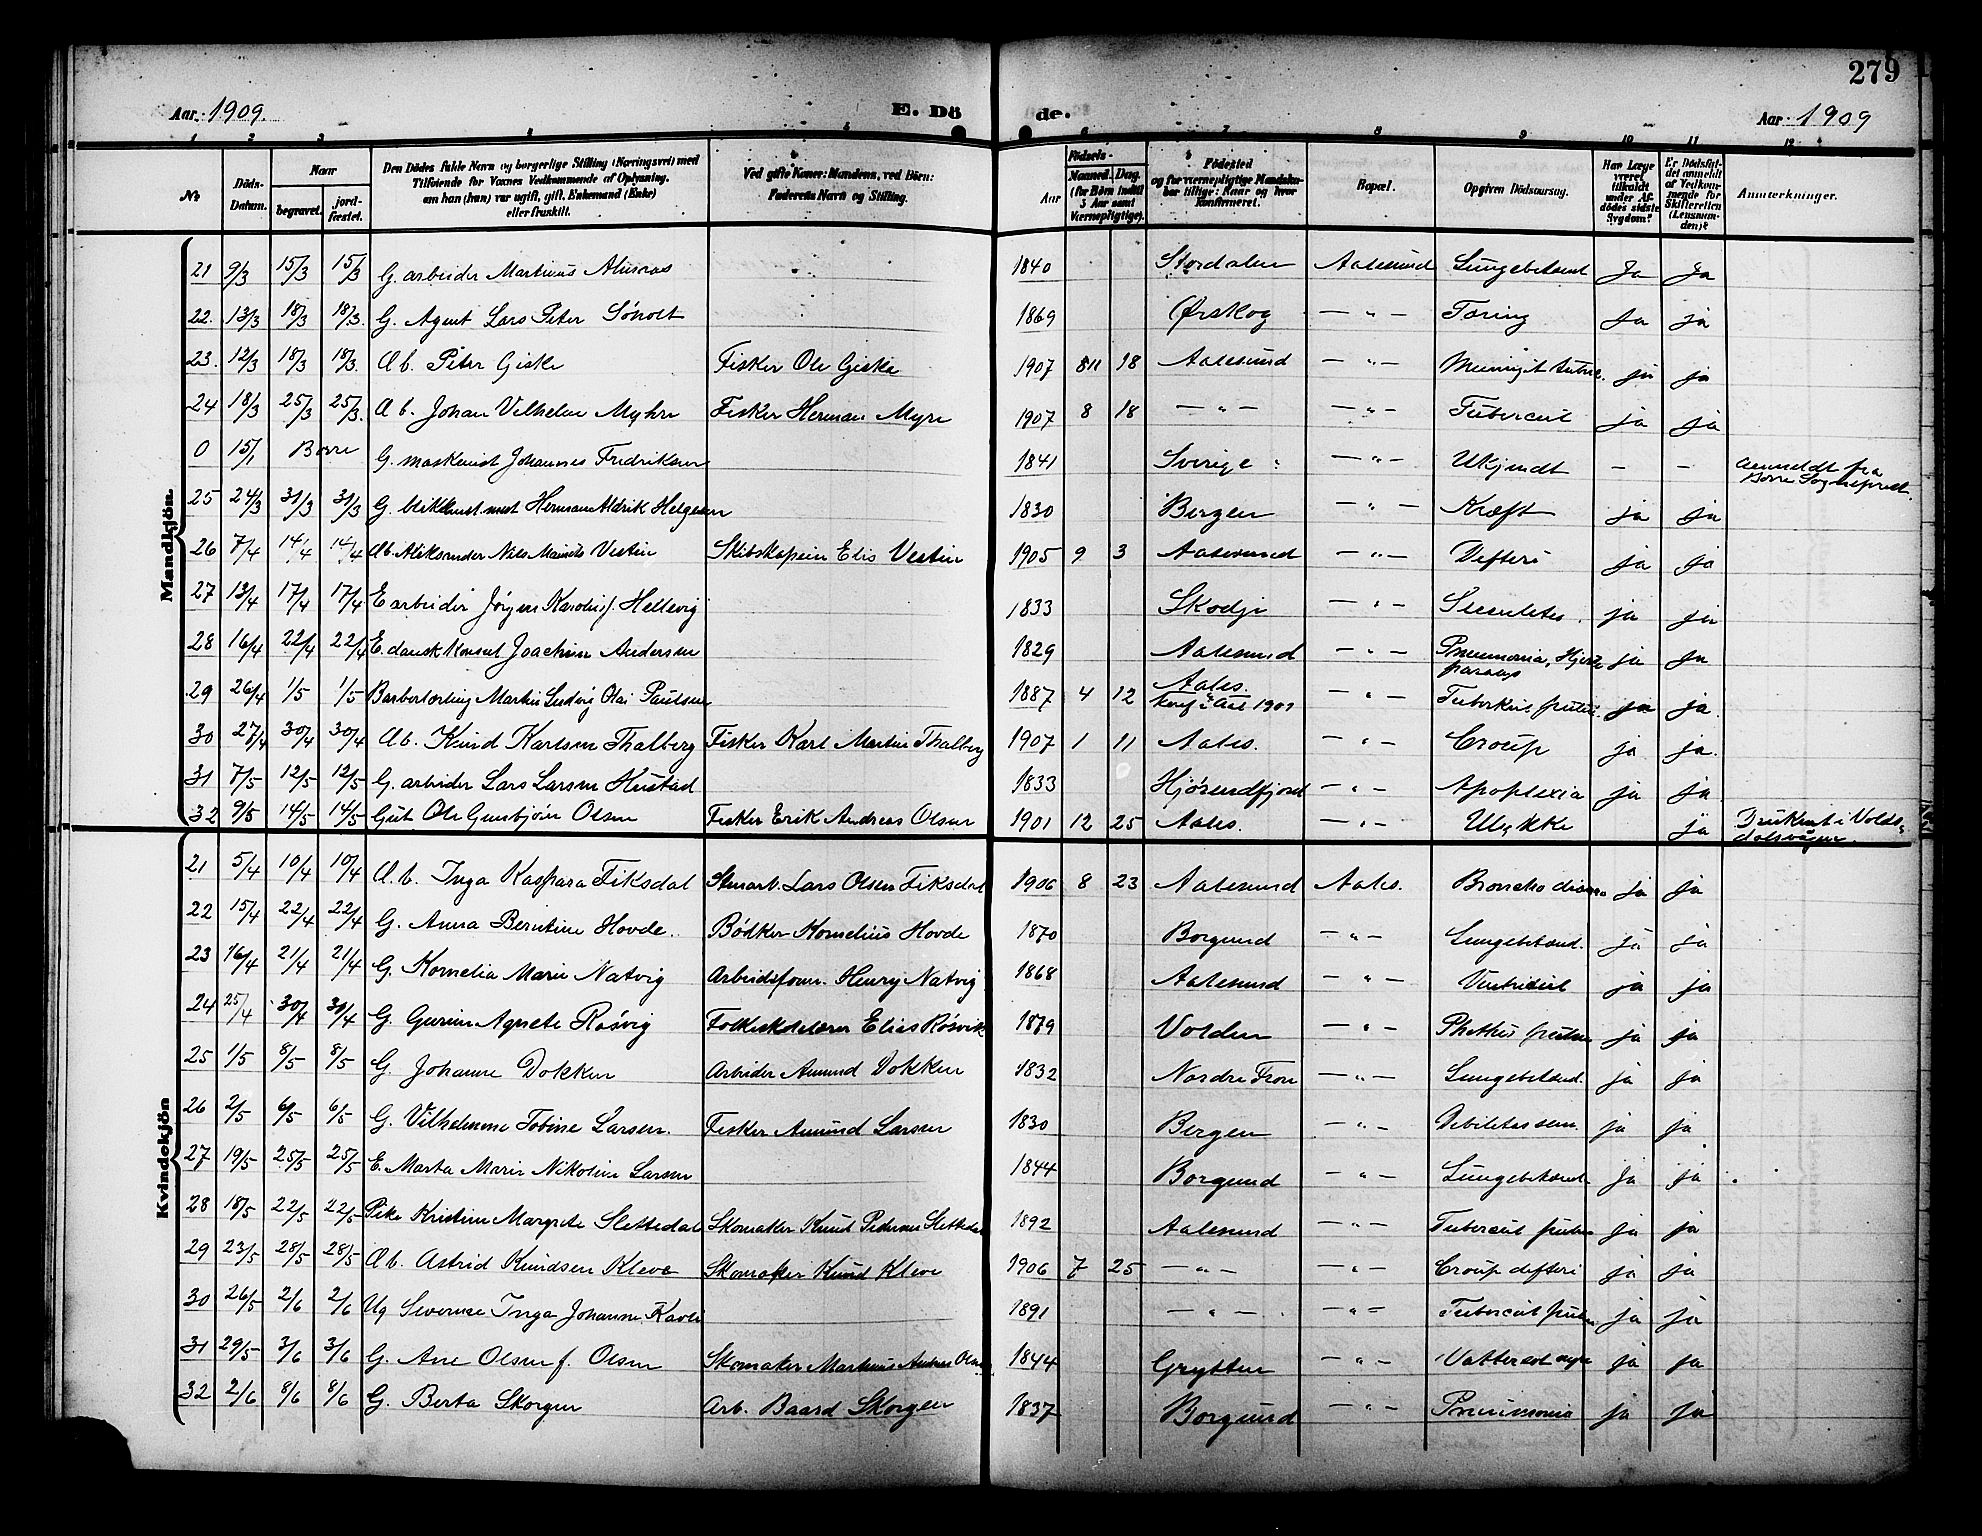 279
Aar 1909. E. Dö de. Aar 1909
1 2 3 4 5 6 7 8 9 10 11 12
No Döds-Datum. Naar begravet. jord-fæstet. Den Dödes fulde Navn og borgerlige Stilling (Næringsvei) med Tilföiende for Voxnes Vedkommende af Oplysning, om han (hun) var ugift, gift, Enkemand (Enke) eller fraskilt. Ved gifte Koner: Mandens, ved Börn: Faderens Navn og Stilling. Aar Födsels- Maaned. Dag. (for Börn indtil 3 Aar samt Værnepligtige). Födested og for værnepligtige Mandskaber tillige: Naar og hvor konfirmeret. Bopæl. Opgiven Dödsaarsag. Har Læge været tilkaldt under Afdödes sidste Sygdom? Er Dödsfaldet anmeldt af Vedkommende for Skifteretten (Lensmanden)? Anmærkninger.
Mandkjön.
21 9/3 15/3 15/3 G. arbeider Martinus 1840 Stordalen Aalesund Lungebetænd Ja Ja
22. 13/3 18/3 18/3. G. Agent Lars Peter Søholt 1869 Ørskog — " — Tæring Ja ja
23. 12/3 18/3 18/3. A b. Peter Giske Fisker Ole Giske 1907 8/11 18 Aalesund — " — Meningit tuberc. ja ja
24 18/3 25/3 25/3. A b. Johan Vilhelm Myhre Fisker Herman Myre 1907 8 18 — " — — " — Tubercul ja ja
0 15/1 Borre G. maskinist Johannes Fredriksen 1841 Sverige — " — Ukjendt – – anmeldt fra Borre Sogneprest.
25 24/3 31/3 31/3 G. Herman Aldrik Helgesen 1830 Bergen — " — Kræft ja ja
26 7/4 14/4 14/4 Ab. Aleksander Nils Vestin Skibskaptein Elis Vestin 1905 9 3 Aalesund — " — Defteri ja ja
27 13/4 17/4 17/4 E arbeider Jørgen Hellevig 1833 Skodje — " — ja ja
28 16/4 22/4 22/4 E. dansk Konsul Joachim Andersen 1829 Aalesund — " — Pneumonia, Hjerte ja ja
29 26/4 1/5 1/5 Martin Ludvig Olai Paulsen 1887 4 12 Aales. Konf i Aal 1901 — " — ja ja.
30 27/4 30/4 30/4 Ab. Knud Karlsen Thalberg Fisker Karl Martin Thalberg 1907 1 11 Aales. — " — Croup ja ja.
31 7/5 12/5 12/5 G. arbeider Lars Larsen Hustad 1833 Hjørendfjord — " — Apoplexia ja ja
32 9/5 14/5 14/5 Gut Ole Gunbjørn Olsen Fisker Erik Andreas Olsen 1901 12 25 Aales. — " — Ulykke ja Druknet i Voldsdalsvågen.
Kvindekjön
21 5/4 10/4 10/4 A. b. Inga Kaspara Fiksdal Stenarb. Lars Olsen Fiksdal 1906 8 23 Aalesund Aales. Broncho ja ja
22 15/4 22/4 22/4 G. Anna Berntine Hovde. Bødker Kornelius Hovde 1870 Borgund — " — Lungebetænd. ja ja
23 16/4 21/4 21/4 G. Kornelia Marie Natvig Arbeidsform. Henry Natvig 1868 Aalesund — " — ja ja
24 25/4 30/4 30/4 G. Agnete Røsvig Folkeskolelærer Elias Røsvik 1879 Volden — " — ja ja
25 1/5 8/5 8/5 G. Johanne Dokken Arbeider Amund Dokken 1832 Nordre Fron — " — Lungebetænd. ja ja
26 2/5 6/5 6/5 G. Vilhelmine Tobine Larsen. Fisker Amund Larsen 1830 Bergen — " — Debilitas sen. ja ja
27 19/5 25/5 25/5 E. Marta Marie Nikoline Larsen 1844 Borgund — " — Lungebetænd. ja ja
28 18/5 22/5 22/5 Pike Kristine Margrete Slettedal Skomaker Knud Pedersen Slettedal 1892 Aalesund — " — Tubercul pulm ja ja
29 23/5 28/5 28/5 A b. Astrid Knudsen Kleve Skomaker Knud Kleve 1906 7 25 — " — — " — Croup defteri ja ja
30 26/5 2/6 2/6 Ug Severine Inga Johanne Kavli 1891 — " — — " — Tubercul pulm ja ja
31 29/5 3/6 3/6 G. Ane Olsen f. Olsen Skomaker Martinus Olsen 1844 Grytten — " — ja ja
32 2/6 8/6 8/6 G. Berta Skorgen Arb. Baard Skorgen 1837 Borgund — " — Pneumonia ja ja